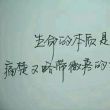 生命的本质是
痛楚又略带微弱的